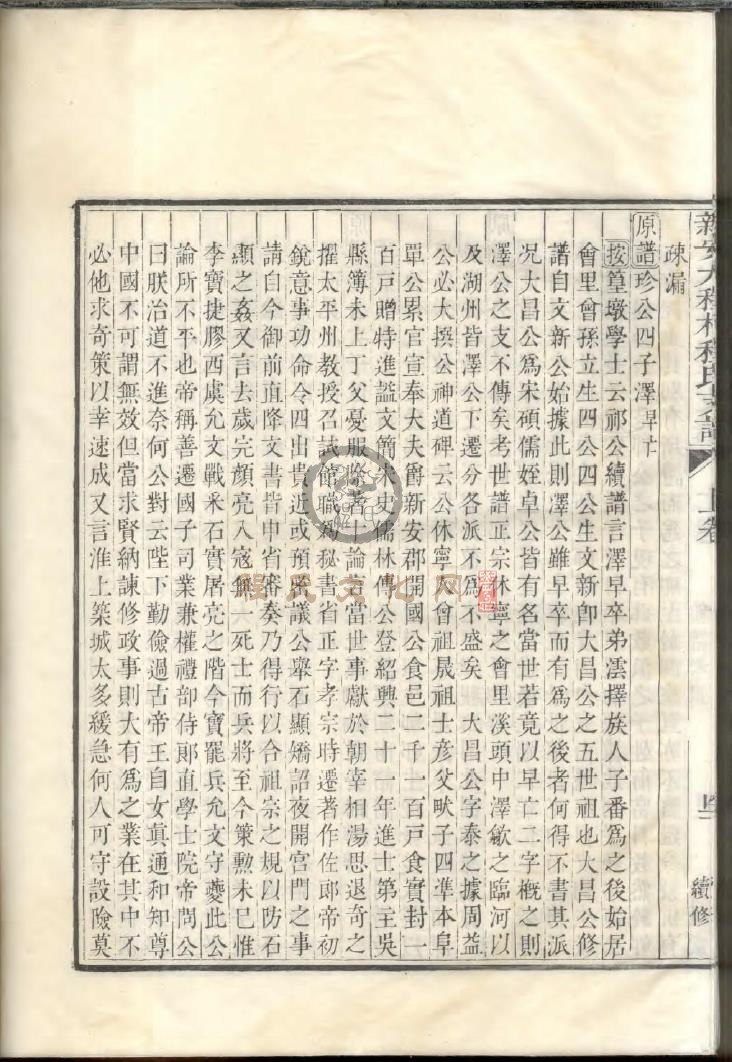 新安大程村程氏支譜
上卷
續修
疎漏
原譜珍公四子澤早亡
按篁墩學士云祁公續譜言澤早卒弟澐擇族人子番爲之後始居
會里曾孫立生四公四公生文新卽大昌公之五世祖也大昌公修
譜自文新公始據此則澤公雖早卒而有爲之後者何得不書其派
况大昌公爲宋碩儒姪卓公皆有名當世若竟以早亡二字槪之則
澤公之支不傳矣考世譜正宗休寧之會里溪頭中澤歙之臨河以
及湖州皆澤公下遷分各派不爲不盛矣 大昌公字泰之據周益
公必大撰公神道碑云公休寧人曾祖晟祖士彦父畎子四準本阜
單公累官宣奉大夫爵新安郡開國公食邑二千一百戸食實封一
百戸贈特進謚文簡宋史儒林傳公登紹興二十一年進士第主吳
縣簿未上丁父憂服除著十論言當世事獻於朝宰相湯思退奇之
擢太平州教授召試館職爲秘書省正字孝宗時遷著作佐郎帝初
銳意事功命令四出貴近或預密議公舉石顯矯詔夜開宮門之事
請自今御前直降文書皆申省審奏乃得行以合祖宗之規以防石
顯之姦又言去歲完顔亮入寇無一死士而兵將至今策勲未巳惟
李寶捷膠西虞允文戰采石實居亮之階今寶罷兵允文守夔此公
論所不平也帝稱善遷國子司業兼權禮部侍郎直學士院帝問公
曰朕治道不進奈何公對云陛下勤儉過古帝王自女眞通和知尊
中國不可謂無效但當求賢納諫修政事則大有爲之業在其中不
必他求奇策以幸速成又言淮上築城太多緩急何人可守設險莫
程氏文化网